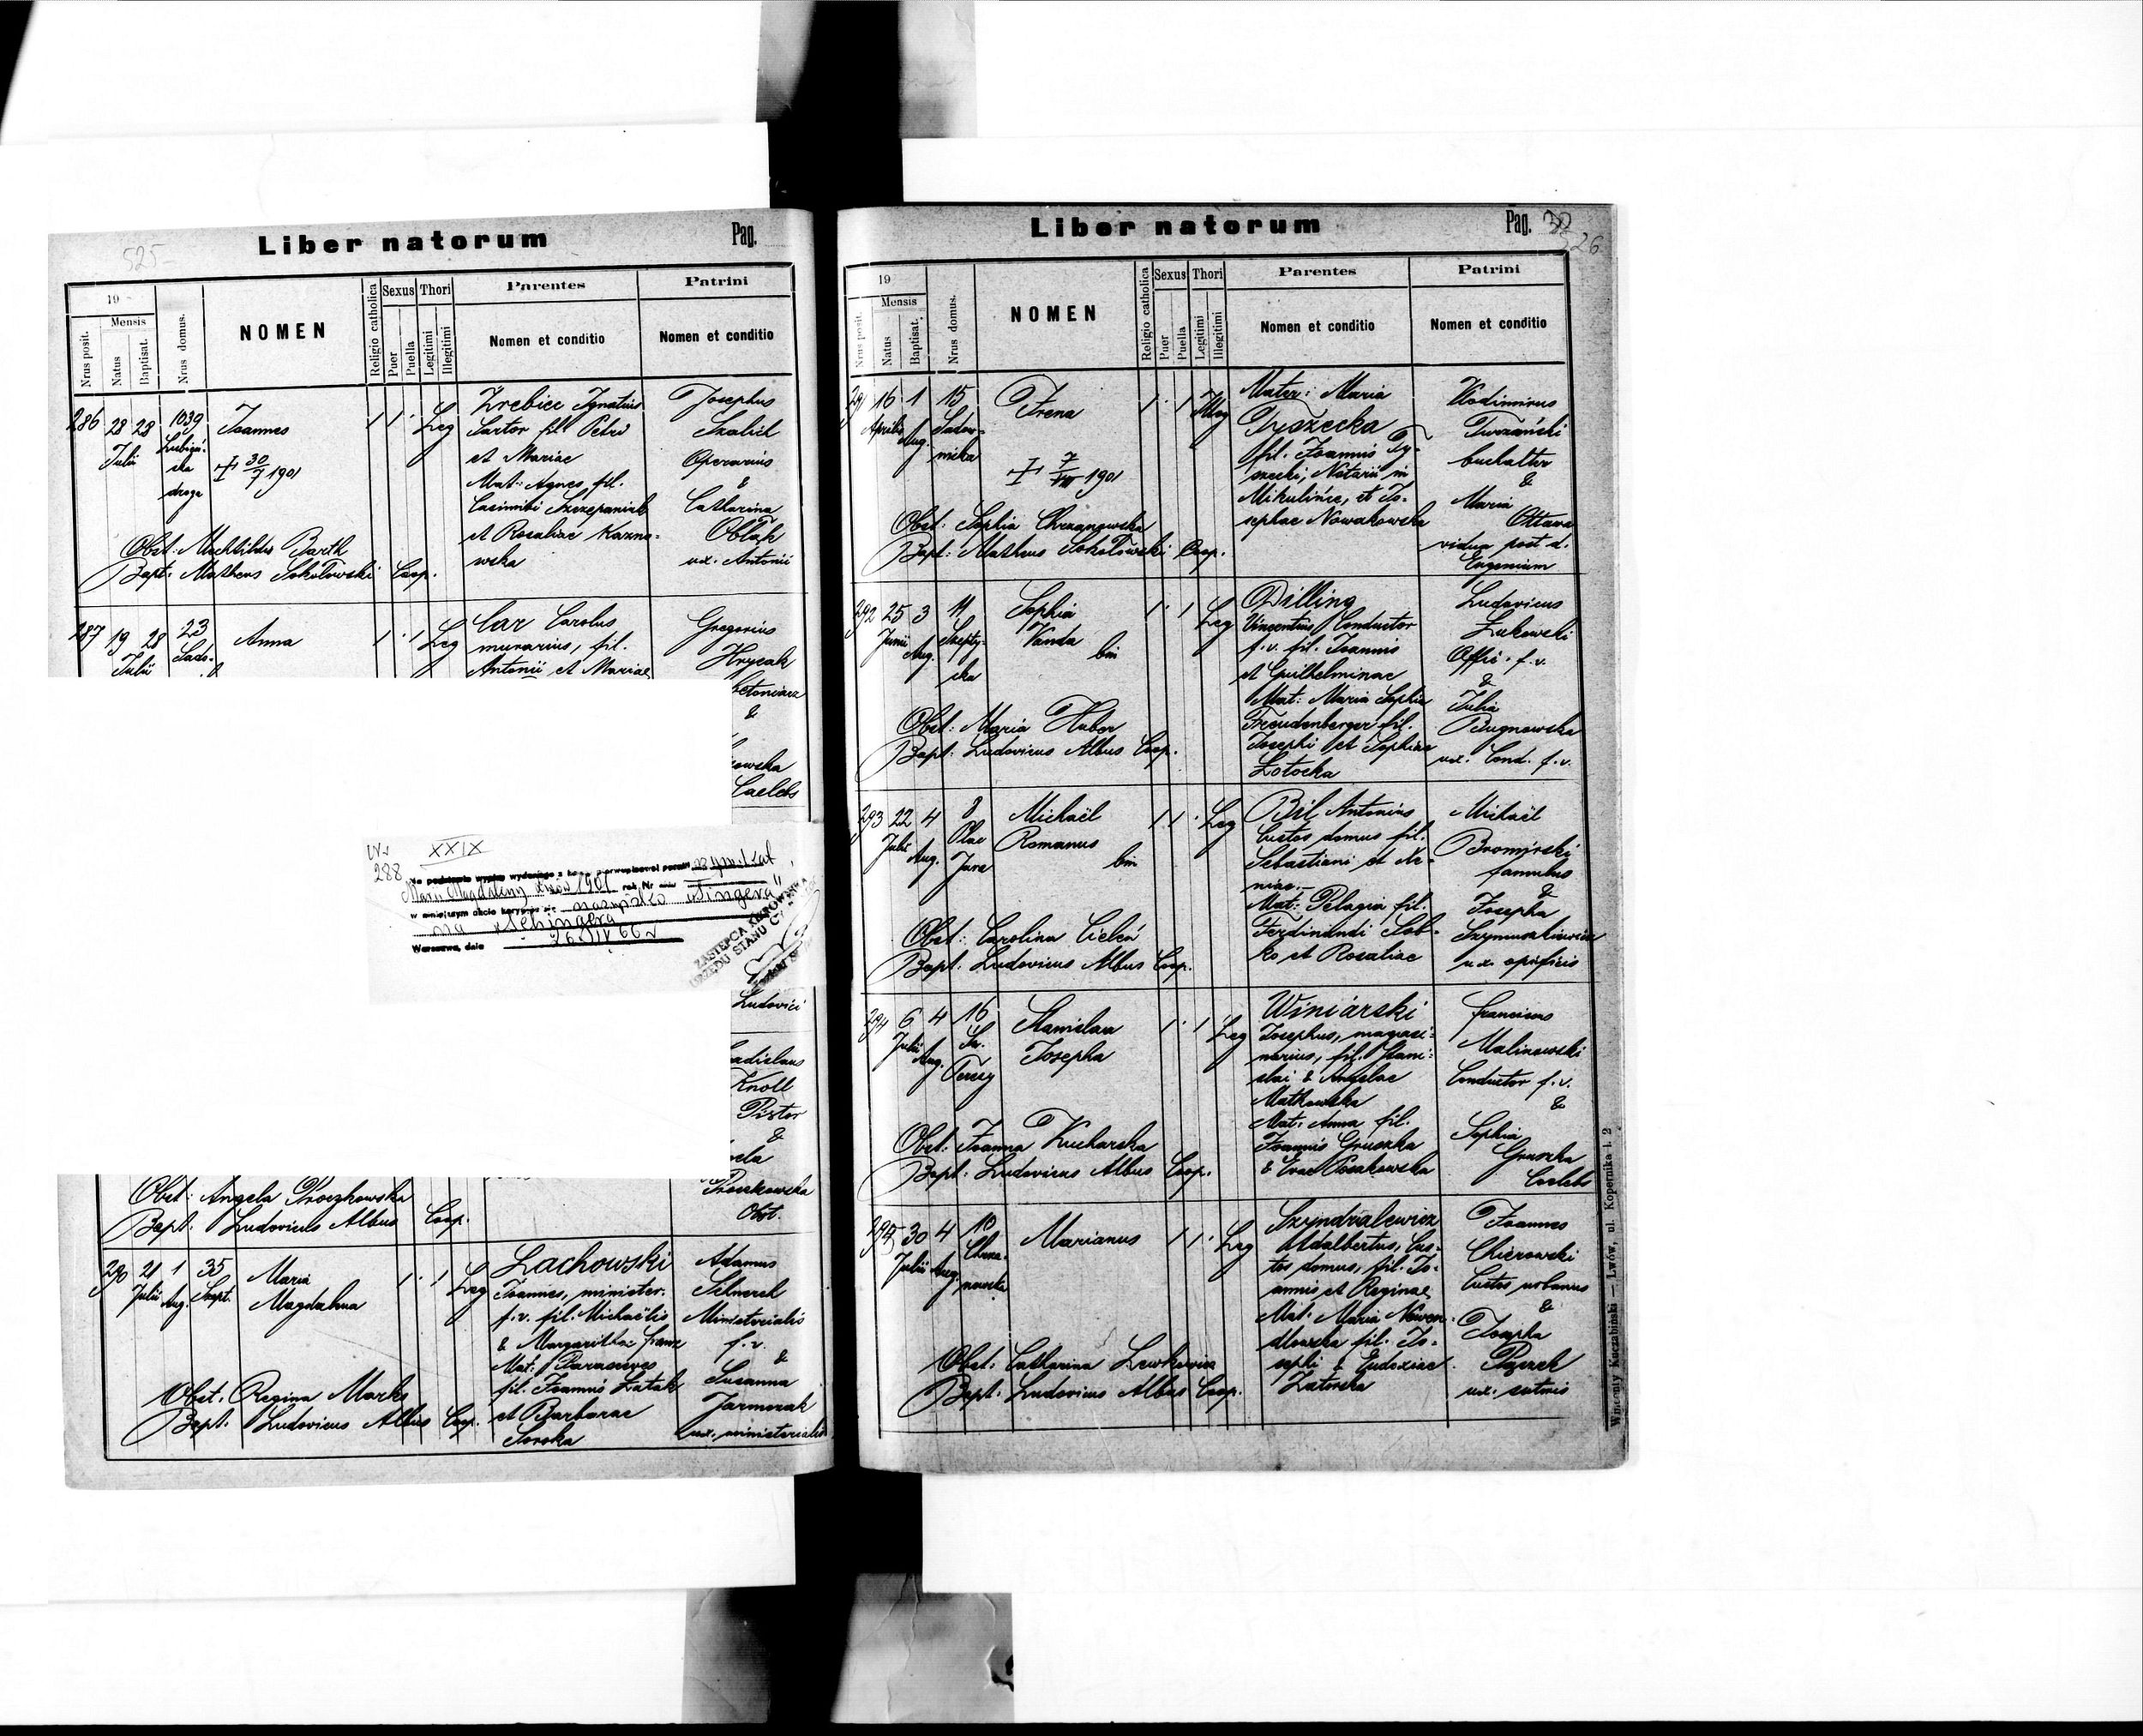 525
Liber natorum
Pag.
19
Mensis
Nrus posit.
Natus
Baptisat.
Nrus domus.
NOMEN
Religio catholica
Sexus
Puer
Puella
Thori
Legitimi
Illegitimi
Parentes
Nomen et conditio
Patrini
Nomen et conditio
286 28 28 1039 Joannes 1 1 Leg
Julii
droga
30/7 1901
Obst: Mechtildis Barth
Bapt: Matheus Sokołowski Coop.
Żrebiec Ignatius
Sartor fil Petri
et Mariae
Mat: Agnes fil.
Casimiri Szczepaniak
et Rosaliae Kazno-
wska
Josephus
Operarius
&
Catharina
Obłąk
ux. Antonii
287 19 28 23 Anna 1 1 Leg
Julii
Car Carolus
murarius, fil.
Antonii et Mariae
Gregorius
Hrycak
&
Caelebs
Nr
288
XXIX
Marii Magdaleny Lwów 1901
nazwisko "Singera"
na
Warszawa, dnia
ZASTĘPCA KIEROWNIKA
URZĘDU STANU
Ludovici
Knoll
Pistor
&
Obst.
Obst: Angela Proczkowska
Bapt: Ludovicus Albus Coop.
290 21 1 35 Maria 1 1 Leg
Julii Aug. Szept. Magdalena
Obst: Regina Marks
Bapt: Ludovicus Albus Coop.
Lachowski
Joannes, minister.
f.v. fil. Michaëlis
& Margaritha
Mat: Parasceves
fil. Joannis Łatak
et Barbarae
Soroka
Adamus
Schnerch
Ministerialis
f.v.
&
Susanna
Jarmorak
ux. ministerialis
Liber natorum
Pag.
326
19
Mensis
Nrus posit.
Natus
Baptisat.
Nrus domus.
NOMEN
Religio catholica
Sexus
Puer
Puella
Thori
Legitimi
Illegitimi
Parentes
Nomen et conditio
Patrini
Nomen et conditio
291 16 1 15 Irena 1 1 Illeg
Aprilis Aug. Sadow-
nicka
7/VIII 1901
Obst: Sophia Chrzanowska
Bapt: Matheus Sokołowski Coop.
Mater: Maria
Tyszecka
fil. Joannis Ty-
szecki, Notarii in
Mikulińce, et Jo-
sephae Nowakowska
Wlodimirus
Turzański
buchalter
&
Maria
Ottawa
vidua post d.
Eugenium
292 25 3 11 Sophia 1 1 Leg
Junii Aug. Szepty-
cka
Vanda
bin
Obst: Maria Huber
Bapt: Ludovicus Albus Coop.
Dilling
Vincentius Conductor
f.v. fil. Joannis
et Guilhelminae
Mat: Maria Sophia
Freudenberger fil.
Josephi et Sophiae
Łotocka
Ludovicus
Żukowski
Offic. f.v.
&
Julia
Bugnowska
ux. Cond. f.v.
293 22 4 8 Michaël 1 1 Leg
Julii Aug. Plac
Jura
Romanus
bin
Obst: Carolina Cieleń
Bapt: Ludovicus Albus Coop.
Bil Antonius
Custos domus fil.
Sebastiani et Xe-
niae.
Mat: Pelagia fil.
Ferdinandi Sob-
ko et Rosaliae
Michaël
Bromirski
famulus
&
Josepha
Szymuszkiewicz
ux. opificis
294 6 4 16 Stanislaa 1 1 Leg
Julii Aug. Św.
Teresy
Josepha
Obst: Joanna Kucharska
Bapt: Ludovicus Albus Coop.
Winiarski
Josephus, magazi-
narius, fil. Stani-
slai & Angelae
Matkowska
Mat: Anna fil.
Joannis Gruszka
& Evae Posakowska
Franciscus
Malinowski
Conductor f.v.
&
Sophia
Gruszka
Caelebs
295 30 4 10 Marianus 1 1 Leg
Julii Aug. Chrza-
nowska
Obst: Catharina Lewkowicz
Bapt: Ludovicus Albus Coop.
Szyndralewicz
Adalbertus, Cus-
tos domus, fil. Jo-
annis et Reginae
Mat: Maria
fil. Jo-
sephi & Eudoxiae
Zatorska
Joannes
Chierowski
Custos urbanus
&
Josepha
ux. sutoris
Wincenty Kuczabiński — Lwów, ul. Kopernika l. 2